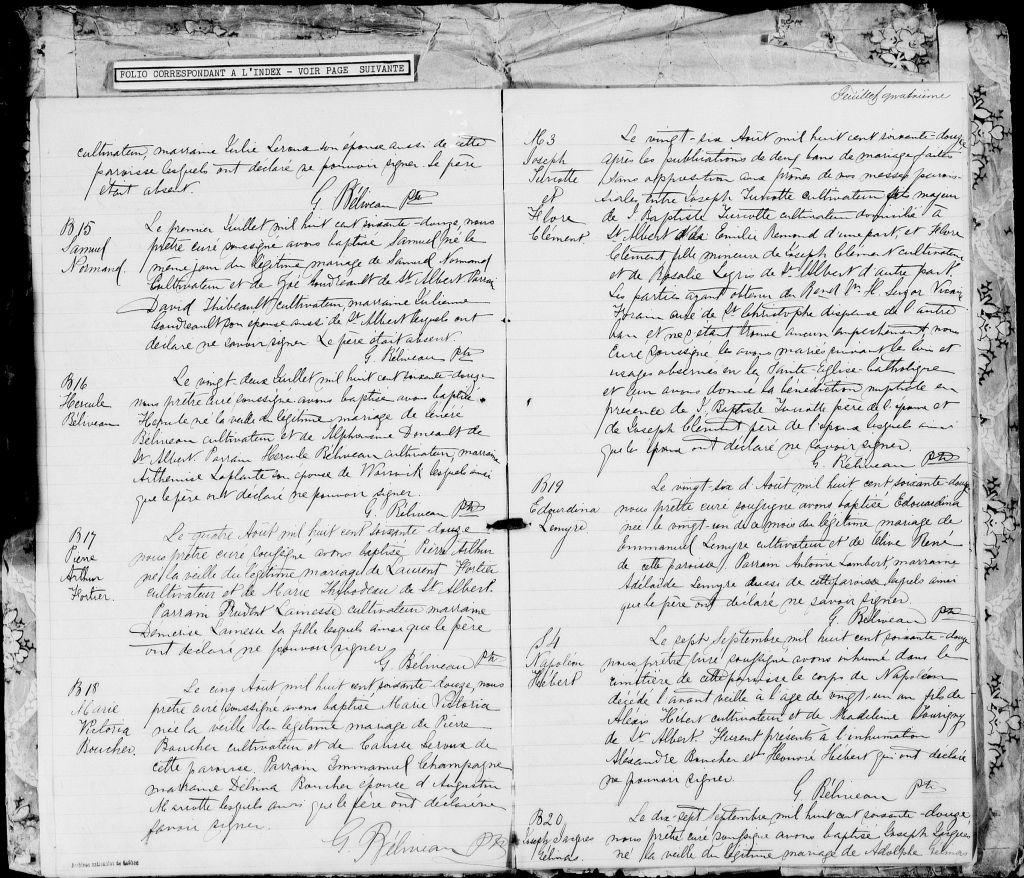 FOLIO CORRESPONDANT A L'INDEX - VOIR PAGE SUIVANTE
cultivateur, marraine Lélie Leroux son épouse aussi de cette
paroisse lesquels ont déclaré ne pouvoir signer. Le père
était absent.
G. Béliveau Ptre
B15
Samuel
Normand
Le premier Juillet mil huit cent soixante-douze, nous
prêtre curé soussigné avons baptisé Samuel, né le
même jour du légitime mariage de Samuel Normand
Cultivateur et de Zoé Goudreault de St Albert. Parrain
David Thibeault cultivateur, marraine Julienne
Goudreault son épouse aussi de St Albert lesquels ont
déclaré ne savoir signer. Le père était absent.
G. Béliveau Ptre
B16
Hercule
Béliveau
Le vingt-deux Juillet mil huit cent soixante-douze
nous prêtre curé soussigné avons baptisé avons baptisé
Hercule né la veille du légitime mariage de
Béliveau cultivateur et de Alphonsine Doucault de
St Albert. Parrain Hercule Béliveau cultivateur, marraine
Arthémise Laplante son épouse de Warwick lesquels ainsi
que le père ont déclaré ne pouvoir signer.
G. Béliveau Ptre
B17
Pierre
Arthur
Fortier.
Le quatre Août mil huit cent soixante-douze
nous prêtre curé soussigné avons baptisé Pierre Arthur
né la veille du légitime mariage de Laurent Fortier
cultivateur et de Marie Thibodeau de St Albert.
Parrain Prudent Lamesse cultivateur marraine
Démerise Lamesse sa fille lesquels ainsi que le père
ont déclaré ne pouvoir signer
G. Béliveau Ptre
B18
Marie
Victoria
Boucher.
Le cinq Août mil huit cent soixante-douze, nous
prêtre curé soussigné avons baptisé Marie Victoria
née la veille du légitime mariage de Pierre
Boucher cultivateur et de Calisse Leroux de
cette paroisse. Parrain Emmanuel Champagne
marraine Délina Boucher épouse d'Augustin
Marcotte lesquels ainsi que le père ont déclaré ne
savoir signer.
G. Béliveau Ptre
Archives nationales du Québec
Feuillet quatrième
M3
Joseph
Turcotte
et
Flore
Clément.
Le vingt-six Août mil huit cent soixante-douze
après les publications de deux bans de mariage faites
sans opposition aux prônes de nos messes parois-
siales, entre Joseph Turcotte cultivateur fils majeur
de J. Baptiste Turcotte cultivateur domicilié à
St Albert et de Emilie Remond d'une part, et Flore
Clément fille mineure de Joseph Clément cultivateur
et de Rosalie Legris de St Albert d'autre part.
Les parties ayant obtenu du Revd Mr. H. Suzor Vicaire
Forain curé de St Christophe dispense de l'autre
ban et ne s'étant trouvé aucun empêchement, nous
curé soussigné les avons mariés suivant les lois et
usages observés en la Sainte-Eglise-Catholique
et leur avons donné la bénédiction nuptiale en
présence de J. Baptiste Turcotte père de l'époux et
de Joseph Clément père de l'épouse lesquels ainsi
que les époux ont déclaré ne savoir signer
G. Béliveau Ptre
B19
Edouardina
Lemyre.
Le vingt-six d'Août mil huit cent soixante-douze
nous prêtre curé soussigné avons baptisé Edouardina
née le vingt-un de ce mois du légitime mariage de
Emmanuel Lemyre cultivateur et de Olive René
de cette paroisse. Parrain Antoine Lambert, marraine
Adélaïde Lemyre aussi de cette paroisse lesquels ainsi
que le père ont déclaré ne savoir signer.
G. Béliveau Ptre
S4
Napoléon
Hébert
Le sept Septembre, mil huit cent soixante-douze
nous prêtre curé soussigné avons inhumé dans le
cimetière de cette paroisse le corps de Napoléon
décédé l'avant veille à l'âge de vingt-un an fils de
Alexis Hébert cultivateur et de Madeleine Tourigny
de St Albert. Furent présents à l'inhumation
Alexandre Boucher et Honoré Hébert qui ont déclaré
ne pouvoir signer.
G. Béliveau Ptre
B20
Joseph Jacques
Gélinas.
Le dix-sept Septembre, mil huit cent soixante-douze
nous prêtre curé soussigné avons baptisé Joseph Jacques
né la veille du légitime mariage de Adolphe Gélinas